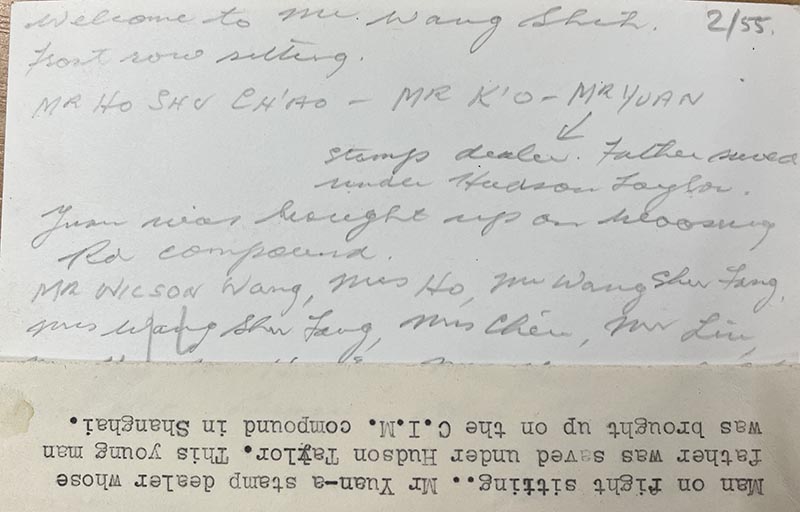 Welcome to Mr. Wang Shih. 2/55.
Front row sitting.
MR HO SHU CH'AO – MR K'O – MR YUAN
stamps dealer. Father saved
under Hudson Taylor.
Yuan was brought up on Woosung
Rd compound.
MR WILSON Wang, Mrs Ho, Mr Wang Shu Fang,
Mrs Wang Shu Fang, Mrs Chen, Mr Lin,
Man on right sitting.. Mr Yuan-a stamp dealer whose
father was saved under Hudson Taylor. This young man
was brought up on the C.I.M. compound in Shanghai.